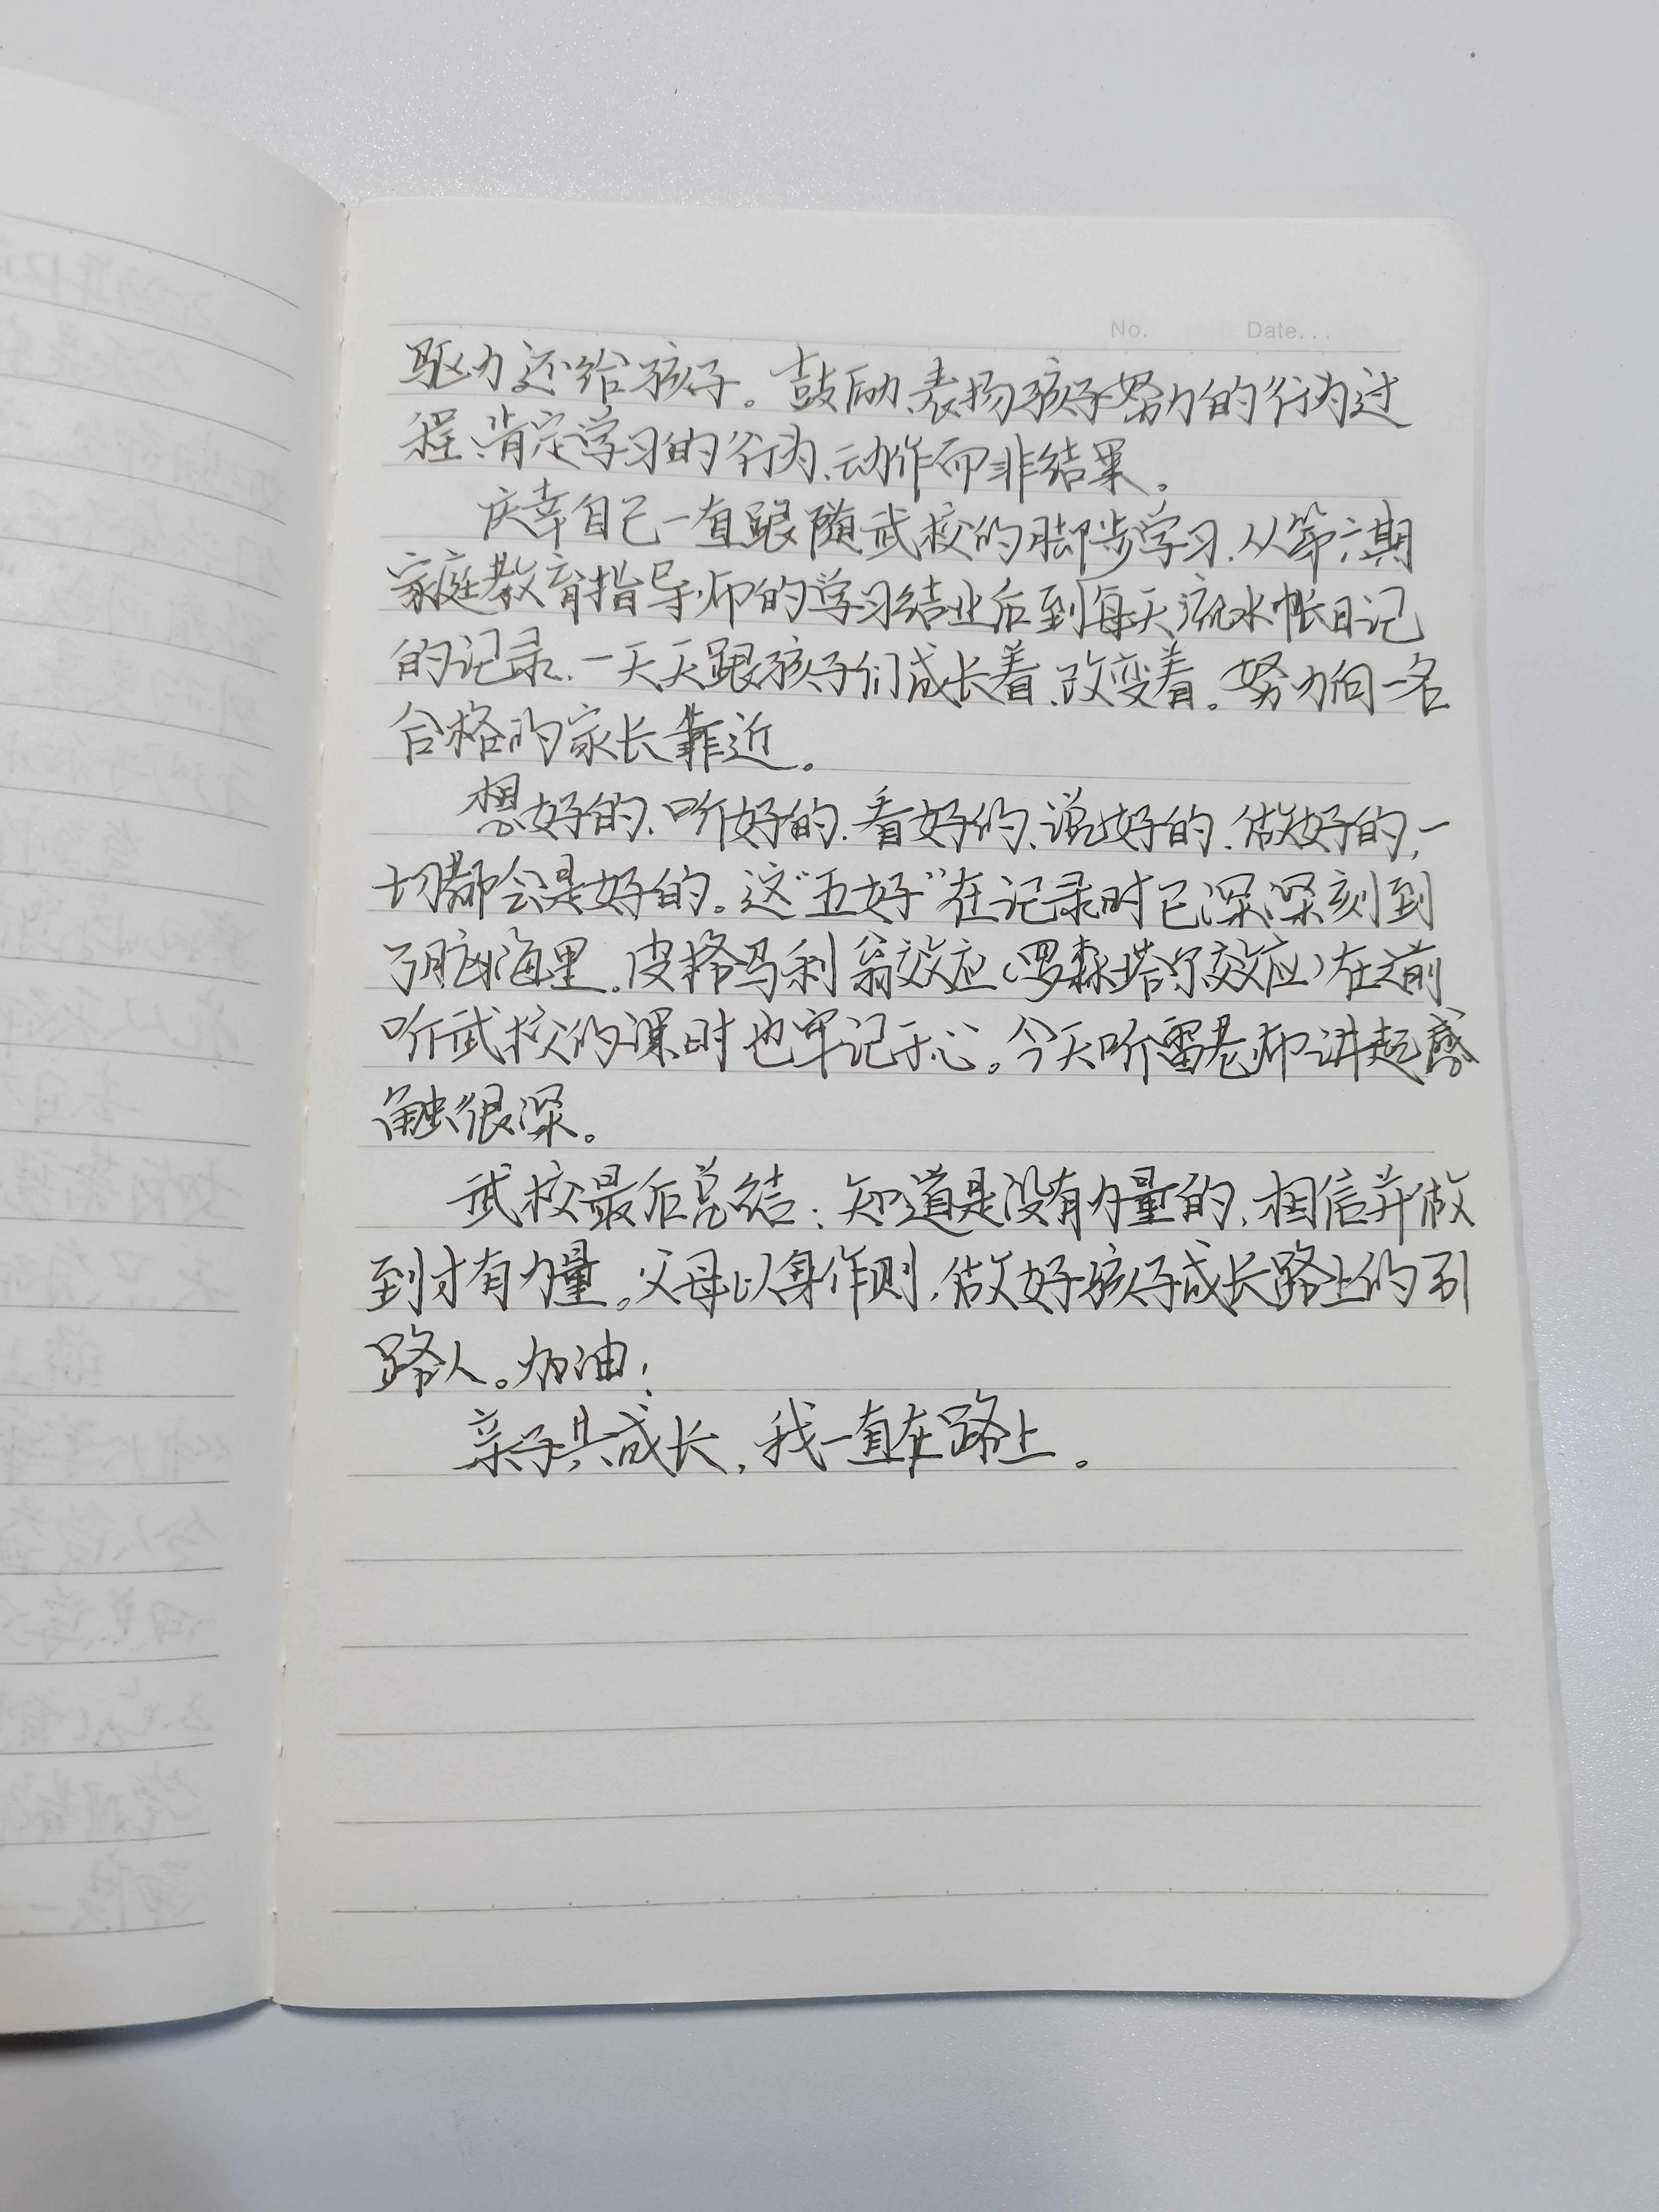 No. Date...
驱力还给孩子。鼓励、表扬孩子努力的行为过
程、肯定学习的行为、动作而非结果。
庆幸自己一直跟随武校的脚步学习，从第六期
家庭教育指导师的学习结业后到每天流水帐日记
的记录，一天天跟孩子们成长着、改变着。努力向一名
合格的家长靠近。
想好的、听好的、看好的、说好的、做好的，一
切都会是好的。这“五好”在记录时已深深刻到
了脑海里。皮格马利翁效应（罗森塔尔效应）在之前
听武校的课时也牢记于心。今天听雷老师讲起感
触很深。
武校最后总结：知道是没有力量的，相信并做
到才有力量。父母以身作则，做好孩子成长路上的引
路人。加油！
亲子共成长，我一直在路上。